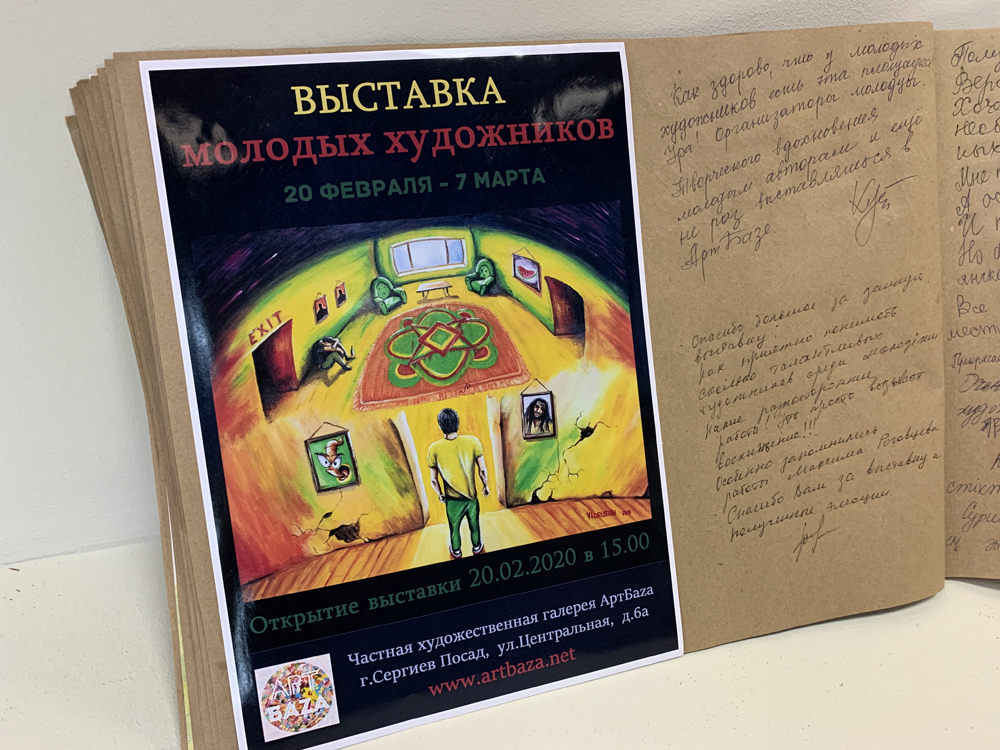 ВЫСТАВКА
МОЛОДЫХ ХУДОЖНИКОВ
20 ФЕВРАЛЯ - 7 МАРТА
EXIT
Открытие выставки 20.02.2020 в 15.00
Частная художественная галерея АртБаzа
г.Сергиев Посад, ул.Центральная, д.6а
www.artbaza.net
ART
BAZA
Как здорово, что у молодых
художников есть эта площадка
Ура! Организаторы молодцы!
Творческого вдохновения
молодым авторам и ещё
не раз выставляться в
АртБазе.
Спасибо большое за данную
выставку!
Как приятно понимать
сколько талантливых
художников среди молодёжи
такие разносторонние
работы! Это просто вызывает
восхищение!!!
Особенно запомнились
работы Максима Роговцева
Спасибо Вам за выставку и
полученные эмоции.
Мне
А
И
Но
Все
мест